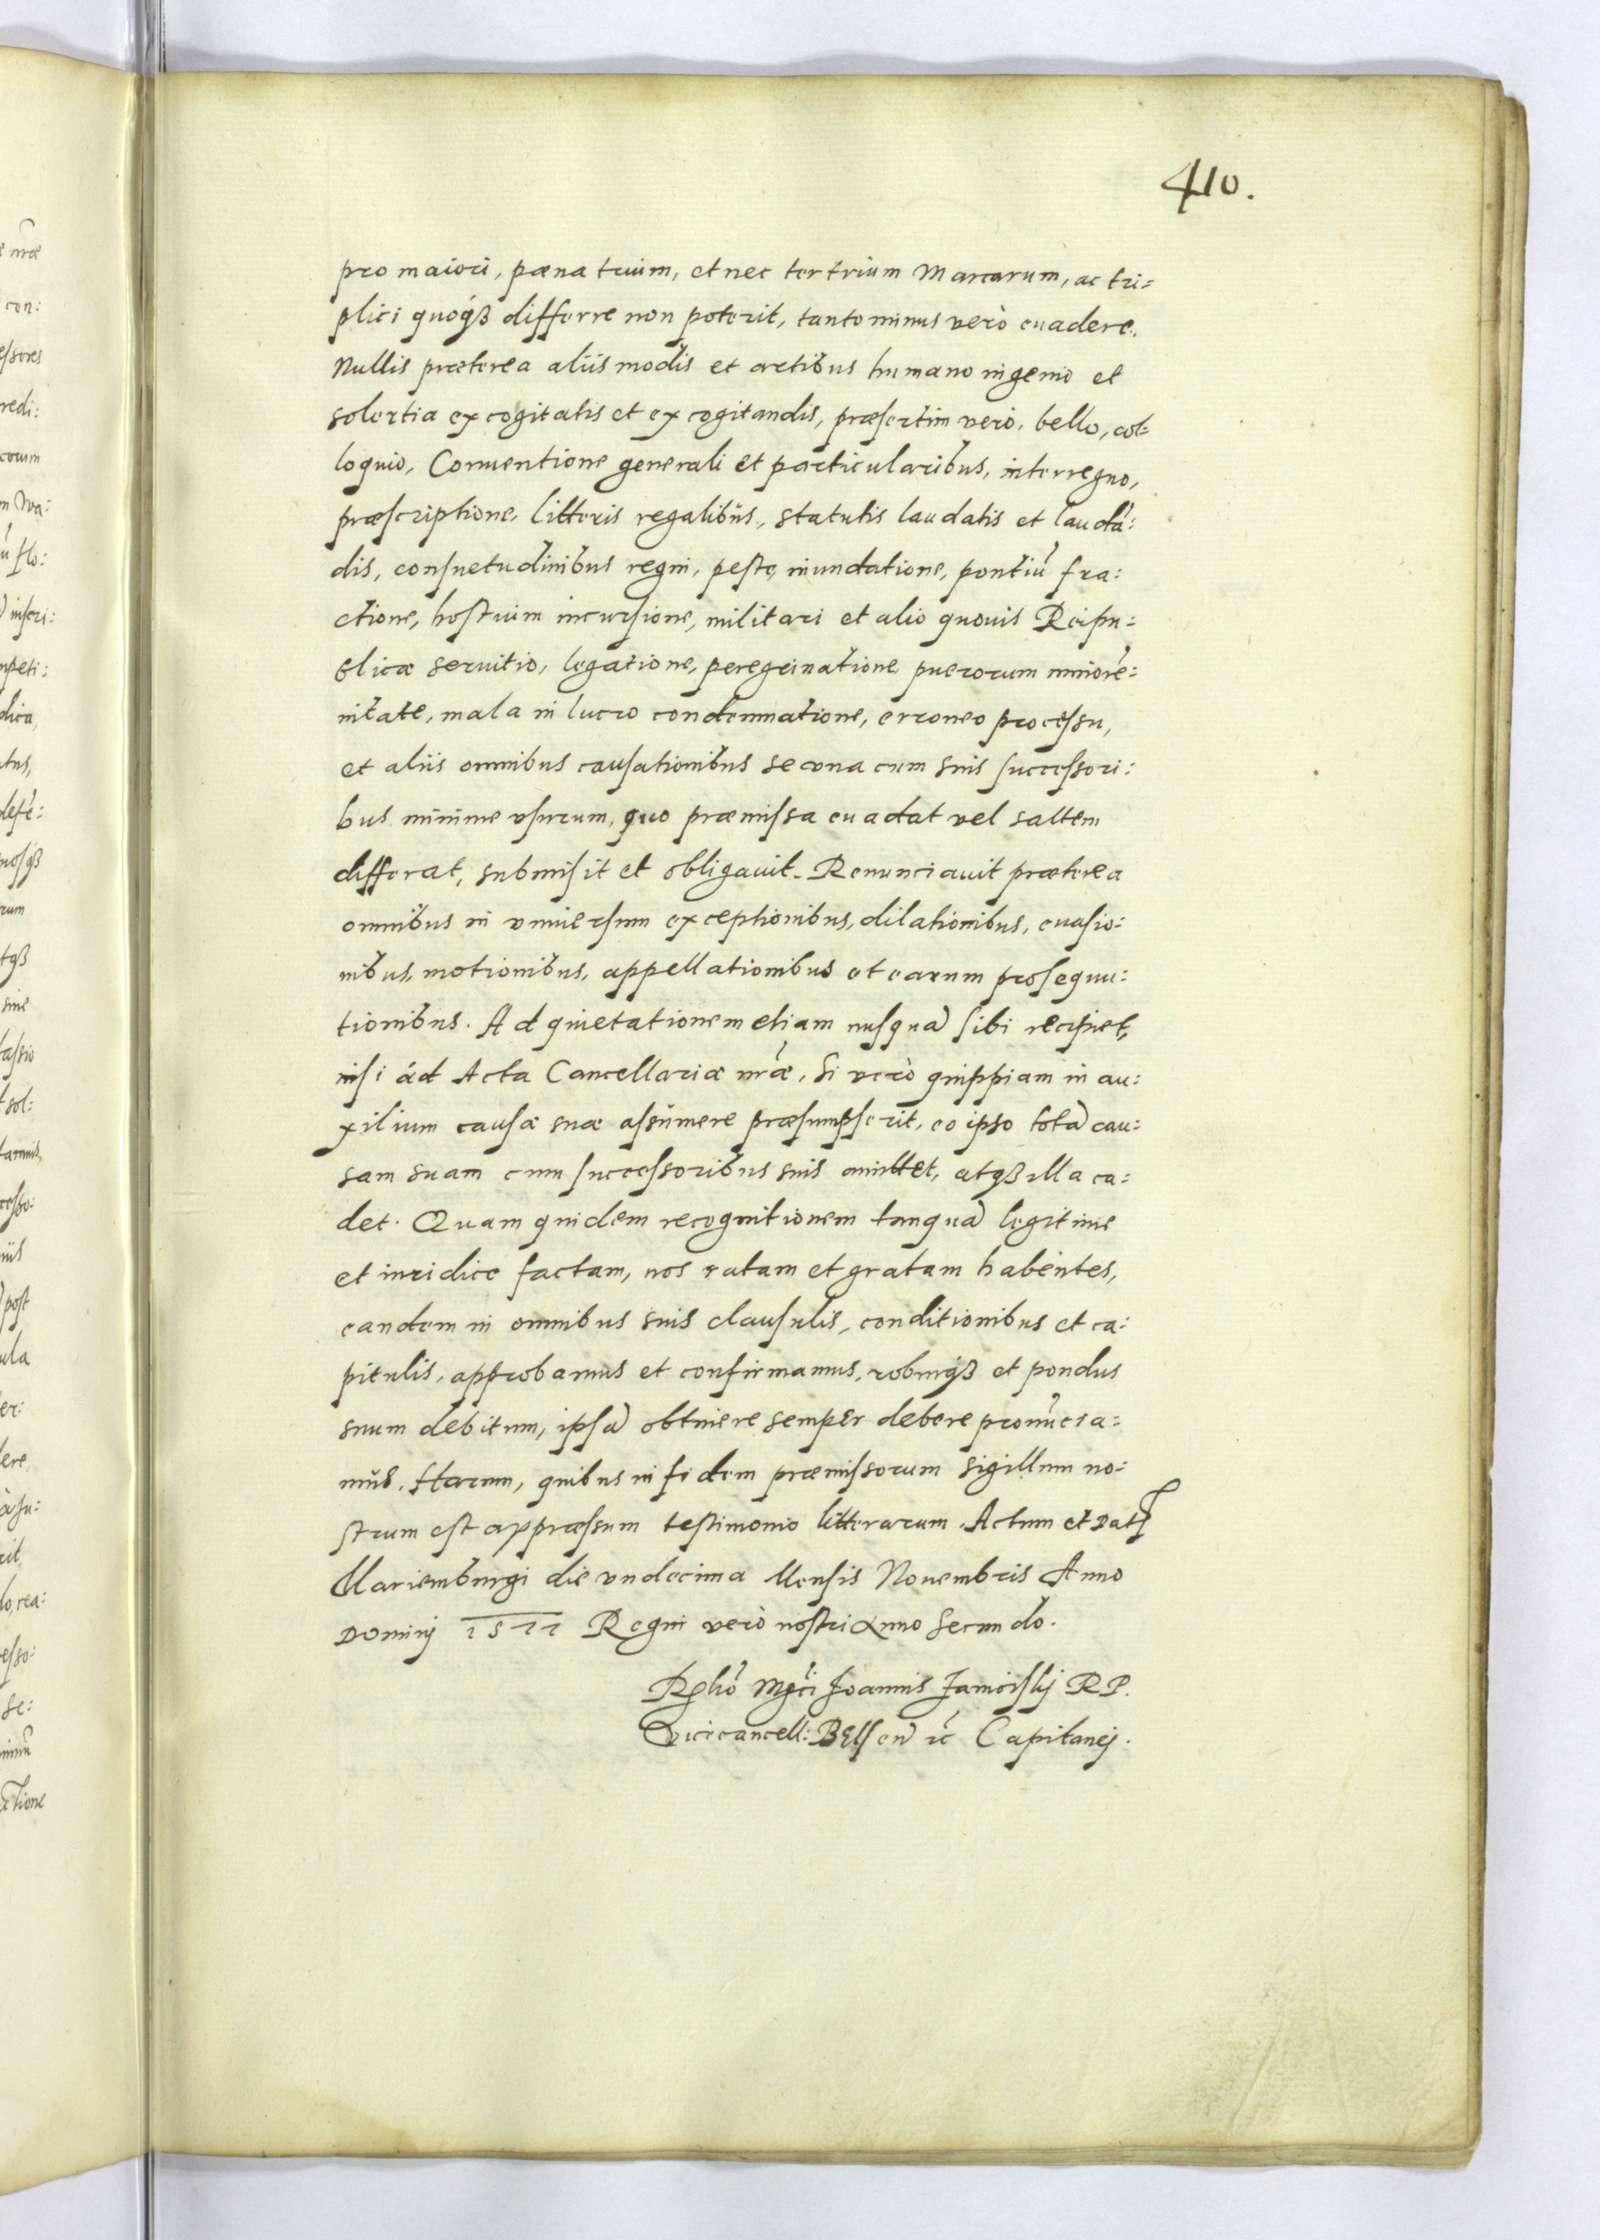 410.
pro maiori, pæna trium, et nec ter trium Marcarum, ac tri:
plici quoqȝ differre non poterit, tanto minus verò euadere.
Nullis præterea aliis modis et artibus humano ingenio et
solertia excogitatis et excogitandis, præsertim verò, bello, col:
loquio, Conuentione generali et particularibus, interregno,
præscriptione, litteris regalibus, statutis laudatis et laudā:
dis, consuetudinibus regni, peste, inundatione, pontiū fra:
ctione, hostium incursione, militari et alio quouis Reipu:
blicæ seruitio, legatione, peregrinatione puerorum minorē:
nitate, mala in lucro condemnatione, erroneo processu,
et aliis omnibus causationibus se vna cum suis successori:
bus minime vsurum, quo præmissa euadat vel saltem
differat, submisit et obligauit. Renunciauit præterea
omnibus in vniuersum exceptionibus, dilationibus, euasio:
nibus, motionibus, appellationibus et earum prosequu:
tionibus. Ad quietationem etiam nusquā sibi recipiet,
nisi ad Acta Cancellariæ nr̄æ, Si verò quippiam in au:
xilium causæ suæ assumere præsumpserit, eo ipso totā cau:
sam suam cum successoribus suis amittet, atqȝ illa ca:
det. Quam quidem recognitionem tanquā legitime
et iuridice factam, nos ratam et gratam habentes,
eandem in omnibus suis clausulis, conditionibus et ca:
pitulis, approbamus et confirmamus, roburqȝ et pondus
suum debitum, ipsā obtinere semper debere pronūcia:
mus. Harum, quibus in fidem præmissorum sigillum no:
strum est appræssum testimonio litterarum. Actum et Dat
Mariemburgi die vndecima Mensis Nouembris Anno
Dominj 1577 Regni verò nostri Anno Secundo.
Rel͞o Mg͞ci Joannis Zamoiskj R P.
Vicecancell: Belsen͞ ec̄ Capitanej.